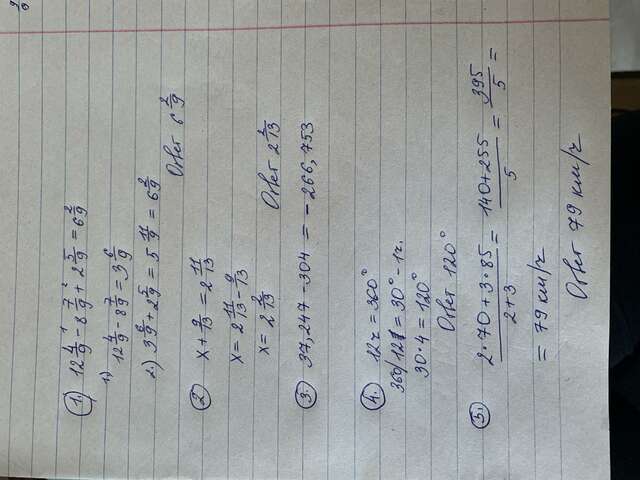 1. 12 4/9 - 8 7/9 + 2 5/9 = 6 2/9
1) 12 4/9 - 8 7/9 = 3 6/9
2.) 3 6/9 + 2 5/9 = 5 11/9 = 6 2/9
Ответ 6 2/9
2 x + 9/13 = 2 11/13
x = 2 11/13 - 9/13
x = 2 2/13
Ответ 2 2/13
3. 37,247 - 304 = - 266,753
4. 12ч = 360°
360/12 = 30° - 1ч.
30·4 = 120°
Ответ 120°
5. 2·70+3·85 / 2+3 = 140+255 / 5 = 395 / 5 =
= 79 км/ч
Ответ 79 км/ч